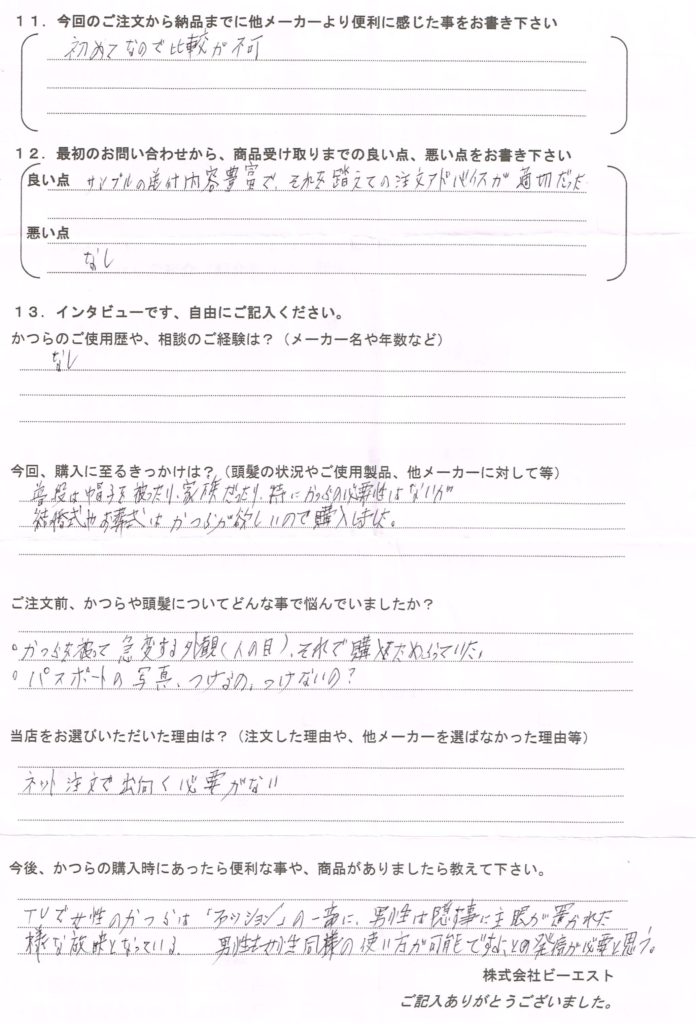 １１．今回のご注文から納品までに他メーカーより便利に感じた事をお書き下さい
初めてなので比較が不可
１２．最初のお問い合わせから、商品受け取りまでの良い点、悪い点をお書き下さい
良い点 サンプルの送付内容豊富で、それを踏えての注文アドバイスが適切だった
悪い点
なし
１３．インタビューです、自由にご記入ください。
かつらのご使用歴や、相談のご経験は？（メーカー名や年数など）
なし
今回、購入に至るきっかけは？（頭髪の状況やご使用製品、他メーカーに対して等）
普段は帽子を被ったり、家族だったり、特にかつらの必要性はないが
結婚式やお葬式はかつらが欲しいので購入しました。
ご注文前、かつらや頭髪についてどんな事で悩んでいましたか？
○かつらを被って急変する外観（人の目）、それで購入をためらっていた。
○パスポートの写真、つけるの、つけないの？
当店をお選びいただいた理由は？（注文した理由や、他メーカーを選ばなかった理由等）
ネット注文で出向く必要がない
今後、かつらの購入時にあったら便利な事や、商品がありましたら教えて下さい。
TVで女性のかつらは「ファッション」の一番に、男性は隠す事に主眼が置かれた
様な放映となっている。 男性も女性同様の使い方が可能ですよとの発信が必要と思う。
株式会社ビーエスト
ご記入ありがとうございました。